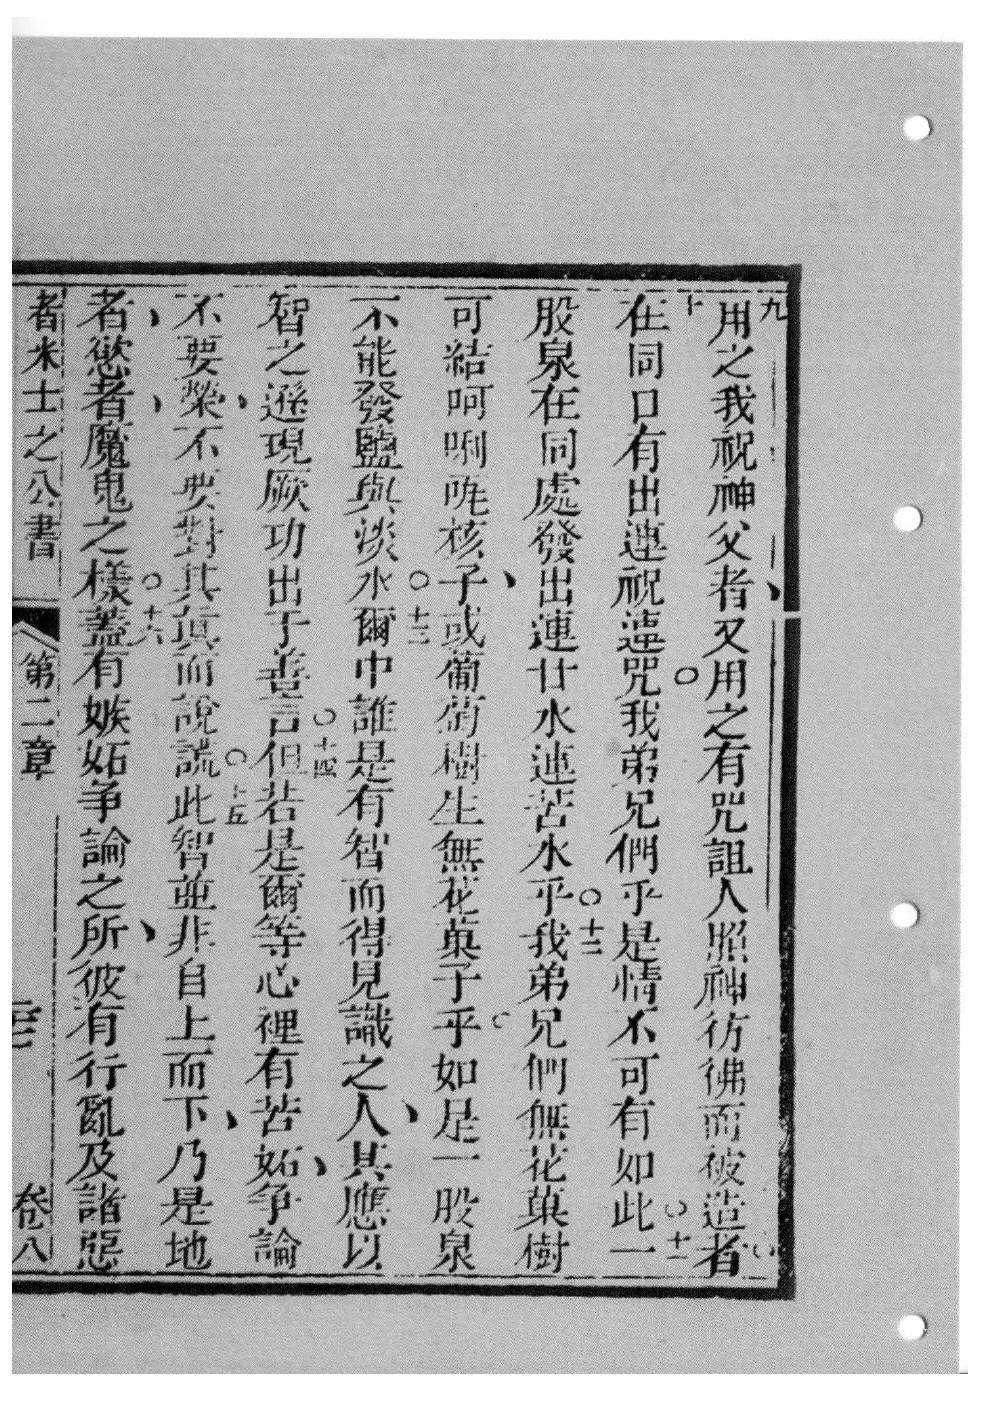 九
用之我祝神父者又用之有咒詛人照神彷彿而被造者
十
在同口有出連祝連咒我弟兄們乎是情不可有如此一
十一
股泉在同處發出連甘水連苦水乎我弟兄們無花菓樹
十二
可結呵唎咓核子或葡萄樹生無花菓子乎如是一股泉
不能發鹽與淡水爾中誰是有智而得見識之人其應以
十三
智之遜現厥功出于善言但若是爾等心裡有苦妬争論
十四
不要榮不要對其真而說謊此智並非自上而下乃是地
十五
者慾者魔鬼之樣蓋有嫉妬争論之所彼有行亂及諸惡
十六
者米士之公書 第二章 卷八